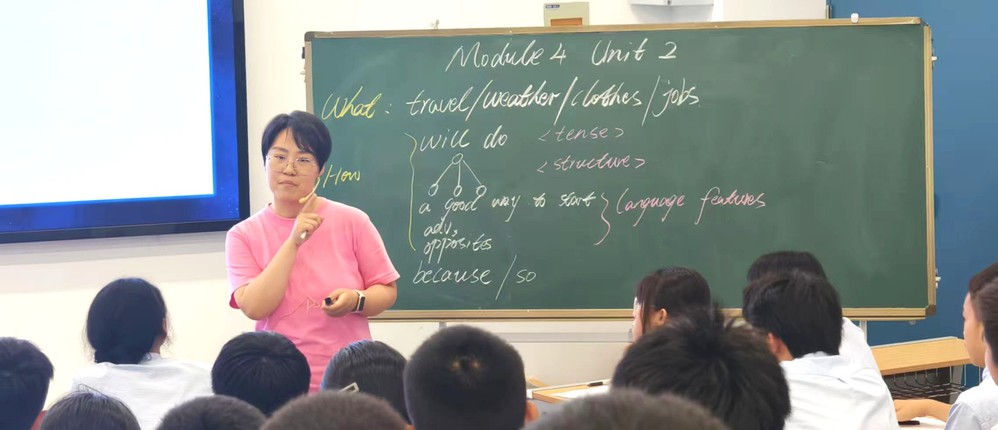 Module 4 Unit 2
What: travel/weather/clothes/jobs
will do <tense>
<structure>
How
a good way to start
language features
adv,
opposites
because/so